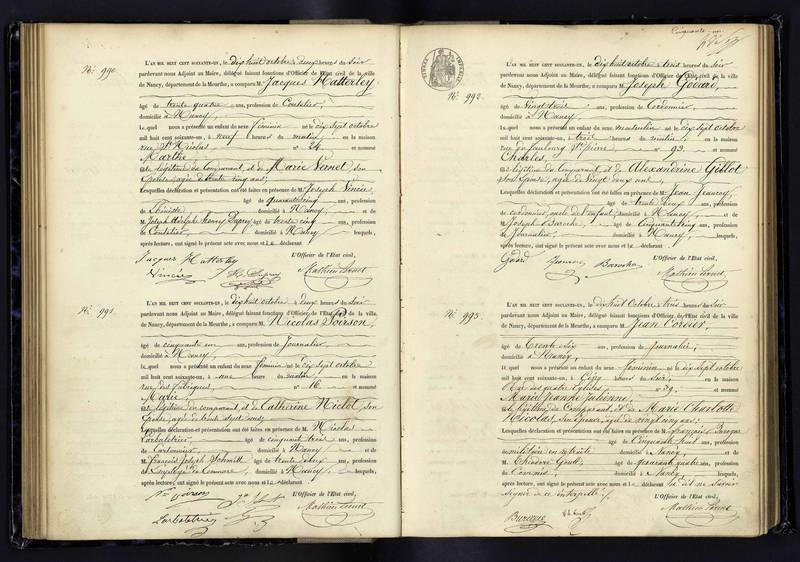 No. 990
L'AN MIL HUIT CENT SOIXANTE-UN, le dix huit octobre à deux heures du Soir
pardevant nous Adjoint au Maire, délégué faisant fonctions d'Officier de l'Etat civil de la ville
de Nancy, département de la Meurthe, a comparu M. Jacques Hatterley
âgé de trente quatre ans, profession de Coutelier,
domicilié à Nancy,
lequel nous a présenté un enfant du sexe féminin né le dix Sept octobre
mil huit cent soixante-un, à neuf heures du matin, en la maison
rue St Nicolas, n° 24 et nommé
Marthe
et de Marie Vernet, Son
Epouse agée de trente cinq ans;
Lesquelles déclaration et présentation ont été faites en présence de M. Joseph
âgé de quarante cinq ans, profession
d'Ebéniste domicilié à Nancy et de
M. Joseph Adolphe Henry âgé de trente cinq ans, profession
de Coutelier, domicilié à Nancy lesquels,
après lecture, ont signé le présent acte avec nous et le déclarant
Jacques Hatterley
L'Officier de l'Etat civil,
No. 991
L'AN MIL HUIT CENT SOIXANTE-UN, le dix huit octobre à deux heures du Soir
pardevant nous Adjoint au Maire, délégué faisant fonctions d'Officier de l'Etat civil de la ville
de Nancy, département de la Meurthe, a comparu M. Nicolas Poirson,
âgé de cinquante un ans, profession de Journalier,
domicilié à Nancy,
lequel nous a présenté un enfant du sexe féminin né le dix Sept octobre
mil huit cent soixante-un, à une heure du matin, en la maison
rue des fabriques, n° 16 et nommé
Marie
et légitime du comparant, et de Catherine Niclot, son
Epouse agée de trente sept ans;
Lesquelles déclaration et présentation ont été faites en présence de M. Nicolas
Larbalétrier âgé de cinquante trois ans, profession
de Cordonnier domicilié à Nancy et de
M. François Joseph Schmitt âgé de trente deux ans, profession
d'Employé de Commerce domicilié à Nancy lesquels,
après lecture, ont signé le présent acte avec nous et le déclarant
L'Officier de l'Etat civil,
Cinquante-un
No. 992
L'AN MIL HUIT CENT SOIXANTE-UN, le dix huit octobre à trois heures du Soir
pardevant nous Adjoint au Maire, délégué faisant fonctions d'Officier de l'Etat civil de la ville
de Nancy, département de la Meurthe, a comparu M. Joseph
âgé de vingt trois ans, profession de Cordonnier
domicilié à Nancy,
lequel nous a présenté un enfant du sexe masculin né le dix Sept octobre
mil huit cent soixante-un, à trois heures du matin, en la maison
rue du faubourg St Pierre n° 93 et nommé
Charles,
et légitime du Comparant, et de Alexandrine Gillot
son Epouse, agée de vingt deux ans.
Lesquelles déclaration et présentation ont été faites en présence de M. Jean
âgé de trente deux ans, profession
de cordonnier, oncle de l'enfant domicilié à Nancy et de
M. Joseph âgé de cinquante cinq ans, profession
de Journalier, domicilié à Nancy, lesquels,
après lecture, ont signé le présent acte avec nous et le déclarant
L'Officier de l'Etat civil,
No. 993
L'AN MIL HUIT CENT SOIXANTE-UN, le dix huit Octobre à trois heures du Soir
pardevant nous Adjoint au Maire, délégué faisant fonctions d'Officier de l'Etat civil de la ville
de Nancy, département de la Meurthe, a comparu M. Jean
âgé de Trente Six ans, profession de Journalier,
domicilié à Nancy,
lequel nous a présenté un enfant du sexe féminin né le dix Sept octobre
mil huit cent soixante-un, à Cinq heures du Soir, en la maison
Rue des quatre Eglises, n° 39 et nommé
Marie Jeanne Julienne,
et légitime du Comparant, et de Marie Charlotte
Nicolas, Son Epouse, agée de vingt cinq ans;
Lesquelles déclaration et présentation ont été faites en présence de M. François
âgé de Cinquante huit ans, profession
de militaire en retraite domicilié à Nancy, et de
M. Théodore âgé de quarante quatre ans, profession
domicilié à Nancy, lesquels,
après lecture, ont signé le présent acte avec nous et le déclarant a dit ne Savoir
Signer de ce interpellé
L'Officier de l'Etat civil,